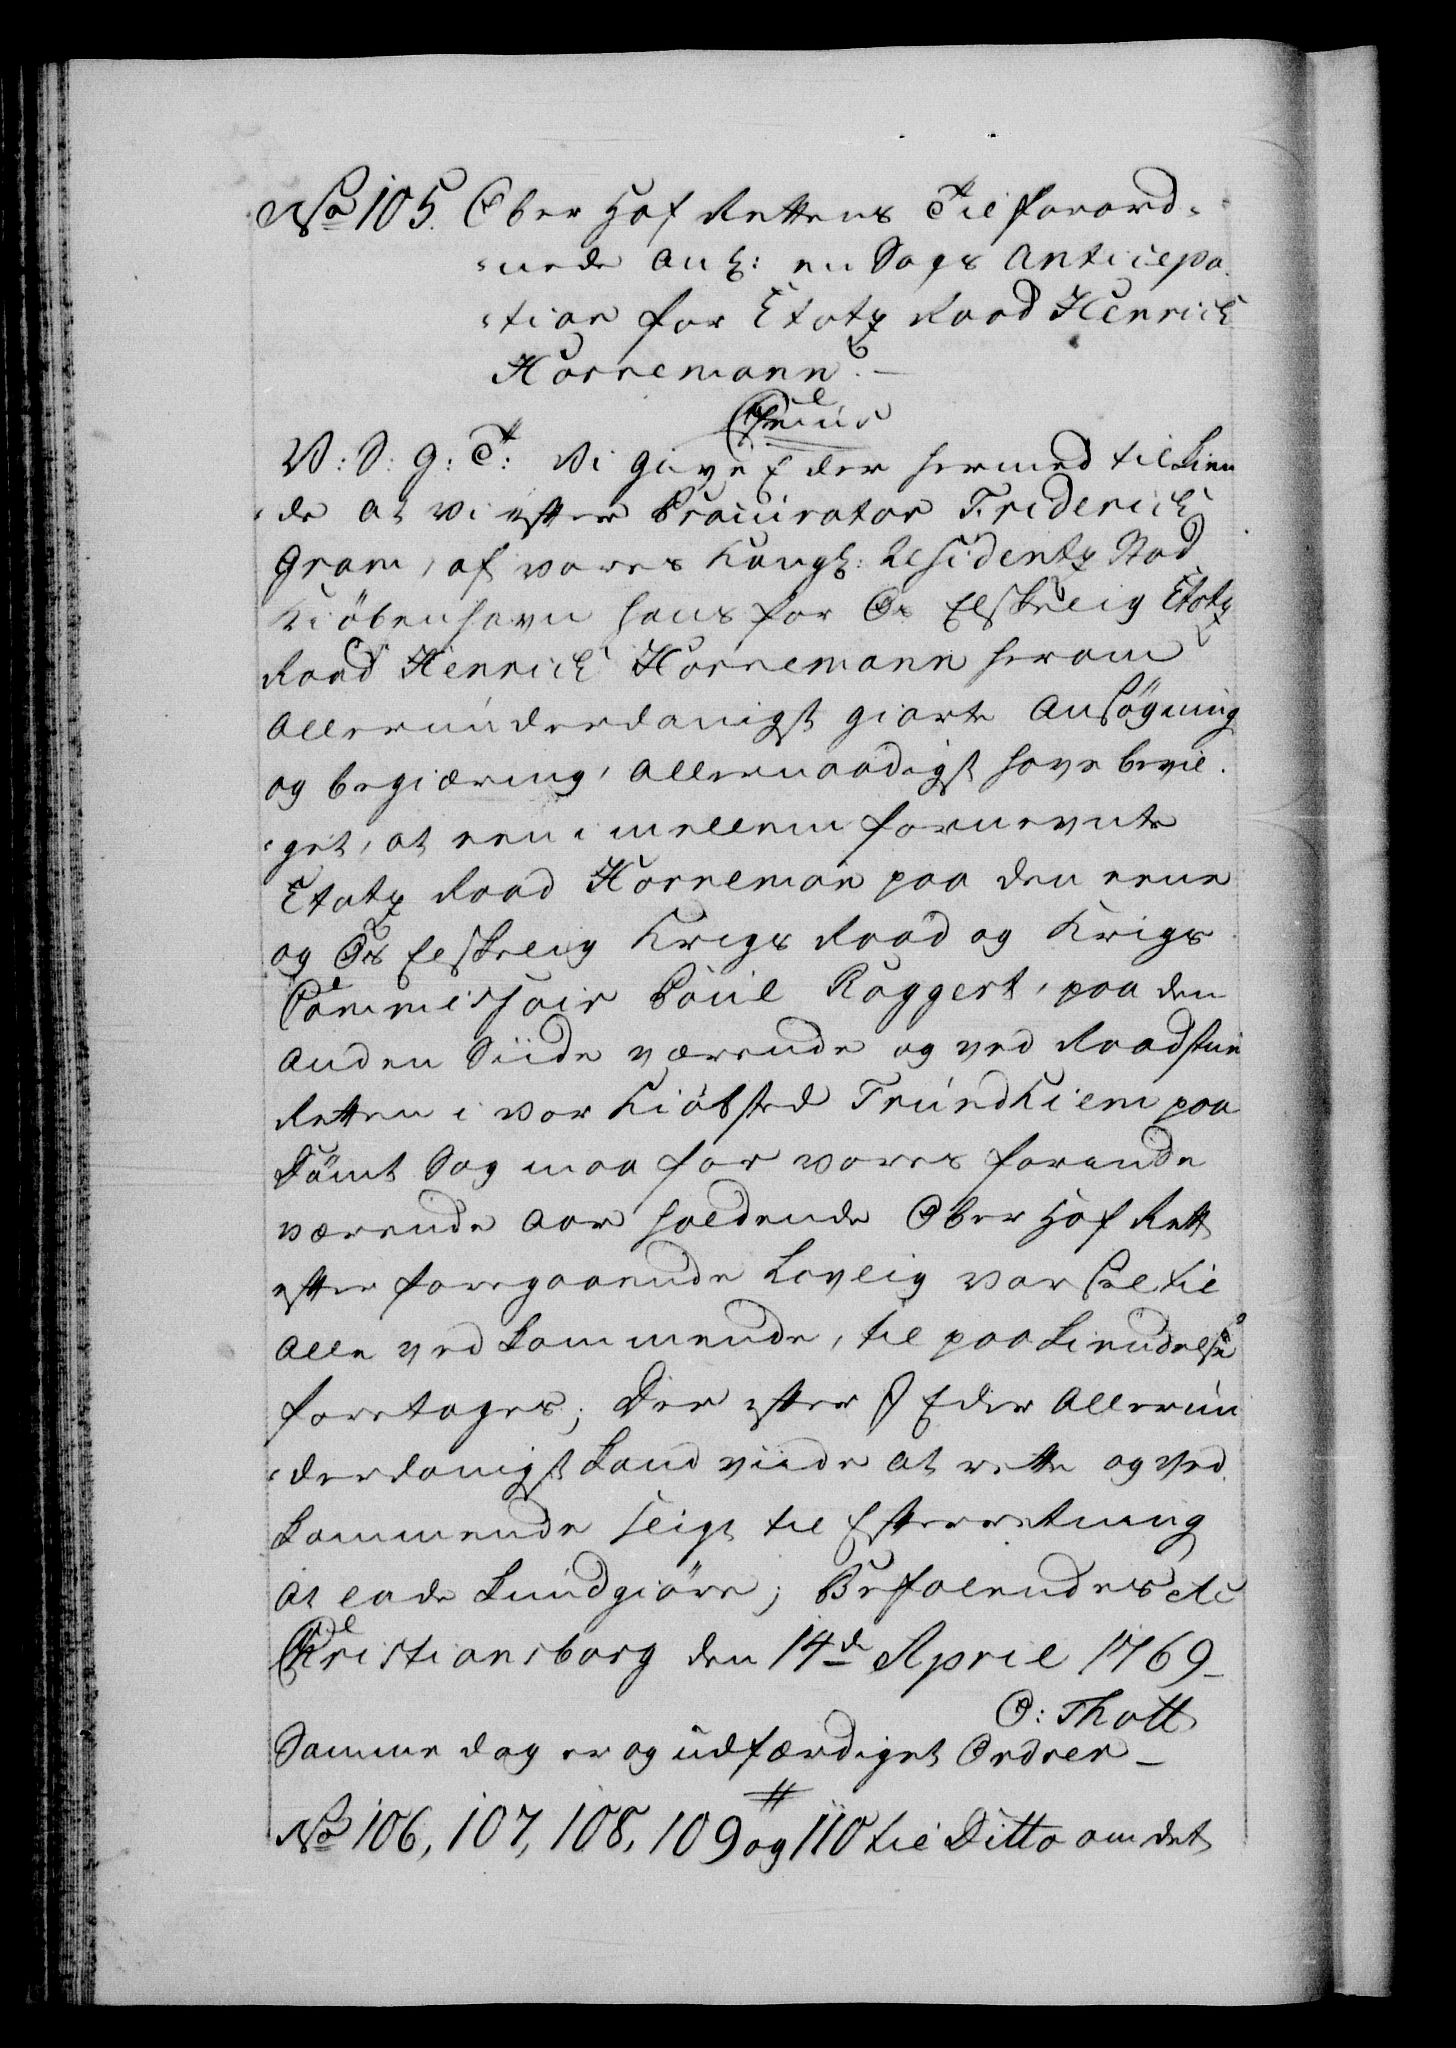 No 105. Ober Hof Rettens Tilforord-
-nede Ang: en Sags Anticipa-
-tion for Etatz Raad Henrich
Hornemann. —
V: S: G: T: Vi give Eder hermed tilkien
-de at vi efter Procurator Friderich
Gram, af vores Kongl: Residentz Stad
Kiöbenhavn hans for Os Elskelig Etatz
Raad Henrich Hornemann herom
Allerunderdanigst giorte Ansögning
og begiæring, Allernaadigst have bevil-
-get, at een imellem fornevnte
Etatz Raad Horneman paa den eene
og Os Elskelig Krigs Raad og Krigs
Commissair Poul Röggert, paa den
anden Siide værende og ved Raadstue
Retten i vor Kiöbsted Trundhiem paa
Dömt Sag maa for vores forinde
værende Aar holdende Ober Hof Rett
efter foregaaende Lovlig varsel til
alle vedkommende, til paakiendelse
foretages; Der efter I Eder Allerun
-derdanigst Land viide at rette og ved
kommende sligt til Efterretning
at lade kundgiöre; Befalendes etc
Christiansborg den 14de April 1769-
O: Thott
Samme dag er og udfærdiget Ordrer —
No 106, 107, 108, 109 og 110 til Ditto om det